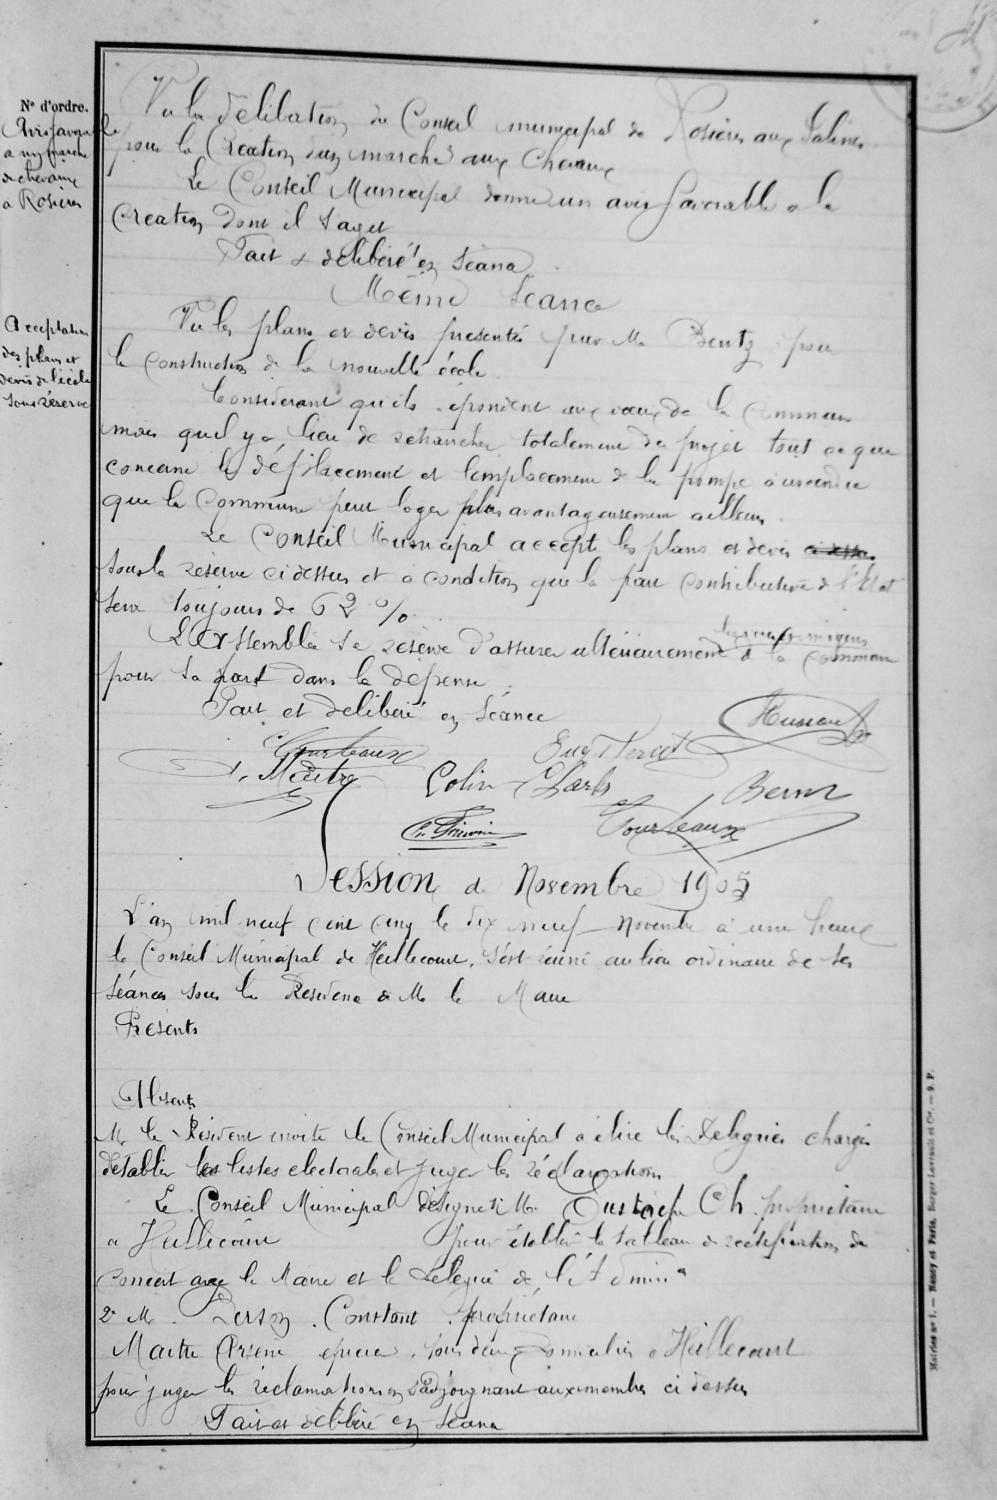 N° d'ordre.
Avis favorable
a un marché
de chevaux
a Rosieres
Vu la délibation du Conseil municipal de Rosieres aux Salines
pour la Creation d'un marché aux Chevaux
Le Conseil Municipal donne un avis favorable a la
Creation dont il s'agit
Fait & délibéré en séance
Même Séance
Acceptation
des plans et
devis de l'école
sous réserve
Vu les plans et devis presentés par M. Bentz pour
la construction de la nouvelle école
Considerant qu'ils répondent aux voeux de la commune
mais qu'il y a lieu de retrancher totalement du projet tout ce que
concerne le déplacement et l'emplacement de la pompe a incendie
que la Commune peut loger plus avantageusement ailleurs.
Le Conseil Municipal accepte les plans et devis ci dessus
sous la réserve ci dessus et à condition que la part contributive de l'Etat
sera toujours de 62 %.
L'Assemblée se réserve d'assurer ultérieurement à la commune
pour sa part dans la dépense.
Fait et délibéré en Séance
Husson
Courteaux
Maitre
Colin Charles
Courteaux
Session de Novembre 1905
L'an mil neuf cent cinq le dix neuf Novembre à une heure
le Conseil Municipal de Heillecourt, s'est réuni au lieu ordinaire de ses
séances sous la Présidence de M. le Maire
Présents
Absents
M. le Président invite le Conseil Municipal a élire les Délégués chargés
d'établir les listes electorales et juger les réclamations
Le Conseil Municipal désigne 1° M. Ch. propriétaire
a Heillecourt pour établir le tableau de rectification de
concert avec le Maire et le Délégué de l'Admin°n
2° M. Person Constant propriétaire
Maitre Arsene epicier, tous deux Domiciliés a Heillecourt
pour juger les réclamations en s'adjoignant aux membres ci dessus
Fait et délibéré en séance
Mairies n° 1. — Nancy et Paris, Berger-Levrault et Cie. — 9. P.